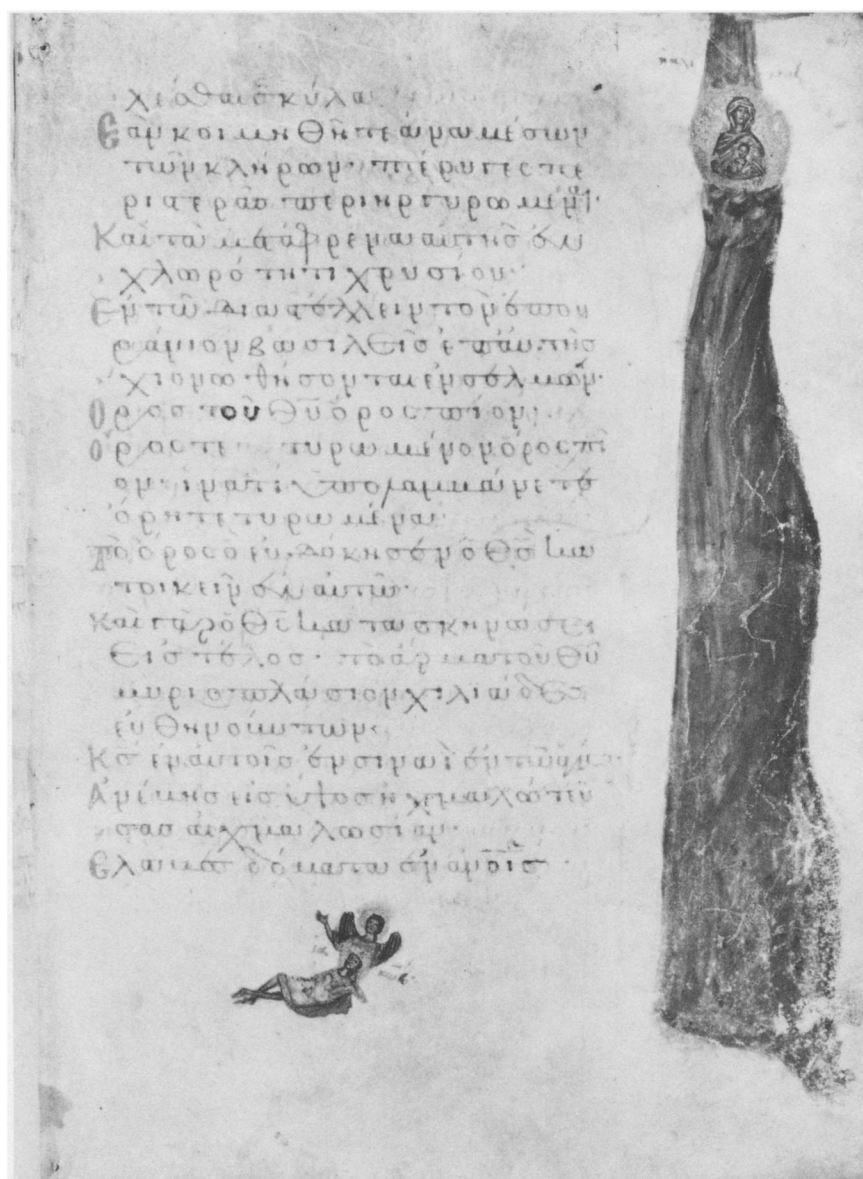 σκύλα
Ἐὰν κοιμηθῆτε ἀνὰ μέσων
τῶν κλήρων· πτέρυγες πε
ριστερᾶς περιηργυρωμέναι·
Καὶ τὰ μετάφρενα αὐτῆς ἐν
χλωρότητι χρυσίου·
Ἐν τῶ διαστέλλειν τὸν ἐπου
ράνιον βασιλεῖς ἐπ' αὐτῆς
χιονωθήσονται ἐν σελμών·
Ὄρος τοῦ θυ ὄρος πίον
ὄρος τετυρωμένον ὄρος πῖ
ον· ἱνατί ὑπολαμβάνετε
ὄρη τετυρωμένα·
Τὸ ὄρος ὃ εὐδόκησεν ὁ θς κα
τοικεῖν ἐν αὐτῶ·
Καὶ γὰρ ὁ θς κατασκηνώσει
εἰς τέλος· τὸ ἅρμα τοῦ θυ
μυριοπλάσιον χιλιάδες
εὐθηνούντων·
Κς ἐν αὐτοῖς ἐν σιναῒ ἐν τῶ ἁγίω
Ἀνέβης εἰς ὕψος ἠχμαλώτευ
σας αἰχμαλωσίαν·
Ἔλαβες δόματα ἐν ανοις·